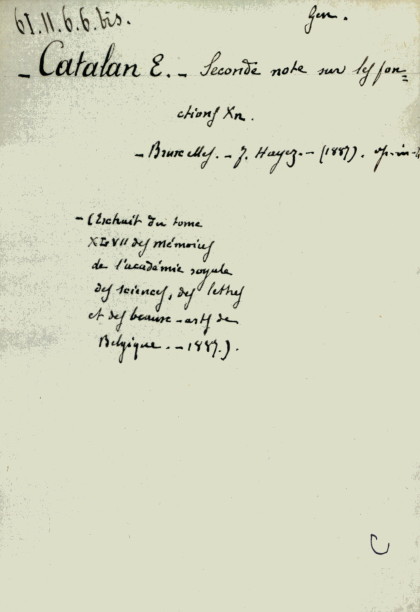 61.II.6.6.bis.
Gen.
- Catalan E. - Seconde note sur les fon=
ctions Xn.
- Bruxelles. - J. Hayez. - (1887). op. in-4
- (Extrait du tome
XLVII des mémoires
de l'académie royale
des sciences, des lettres
et des beaux-arts de
Belgique. - 1887.)
C